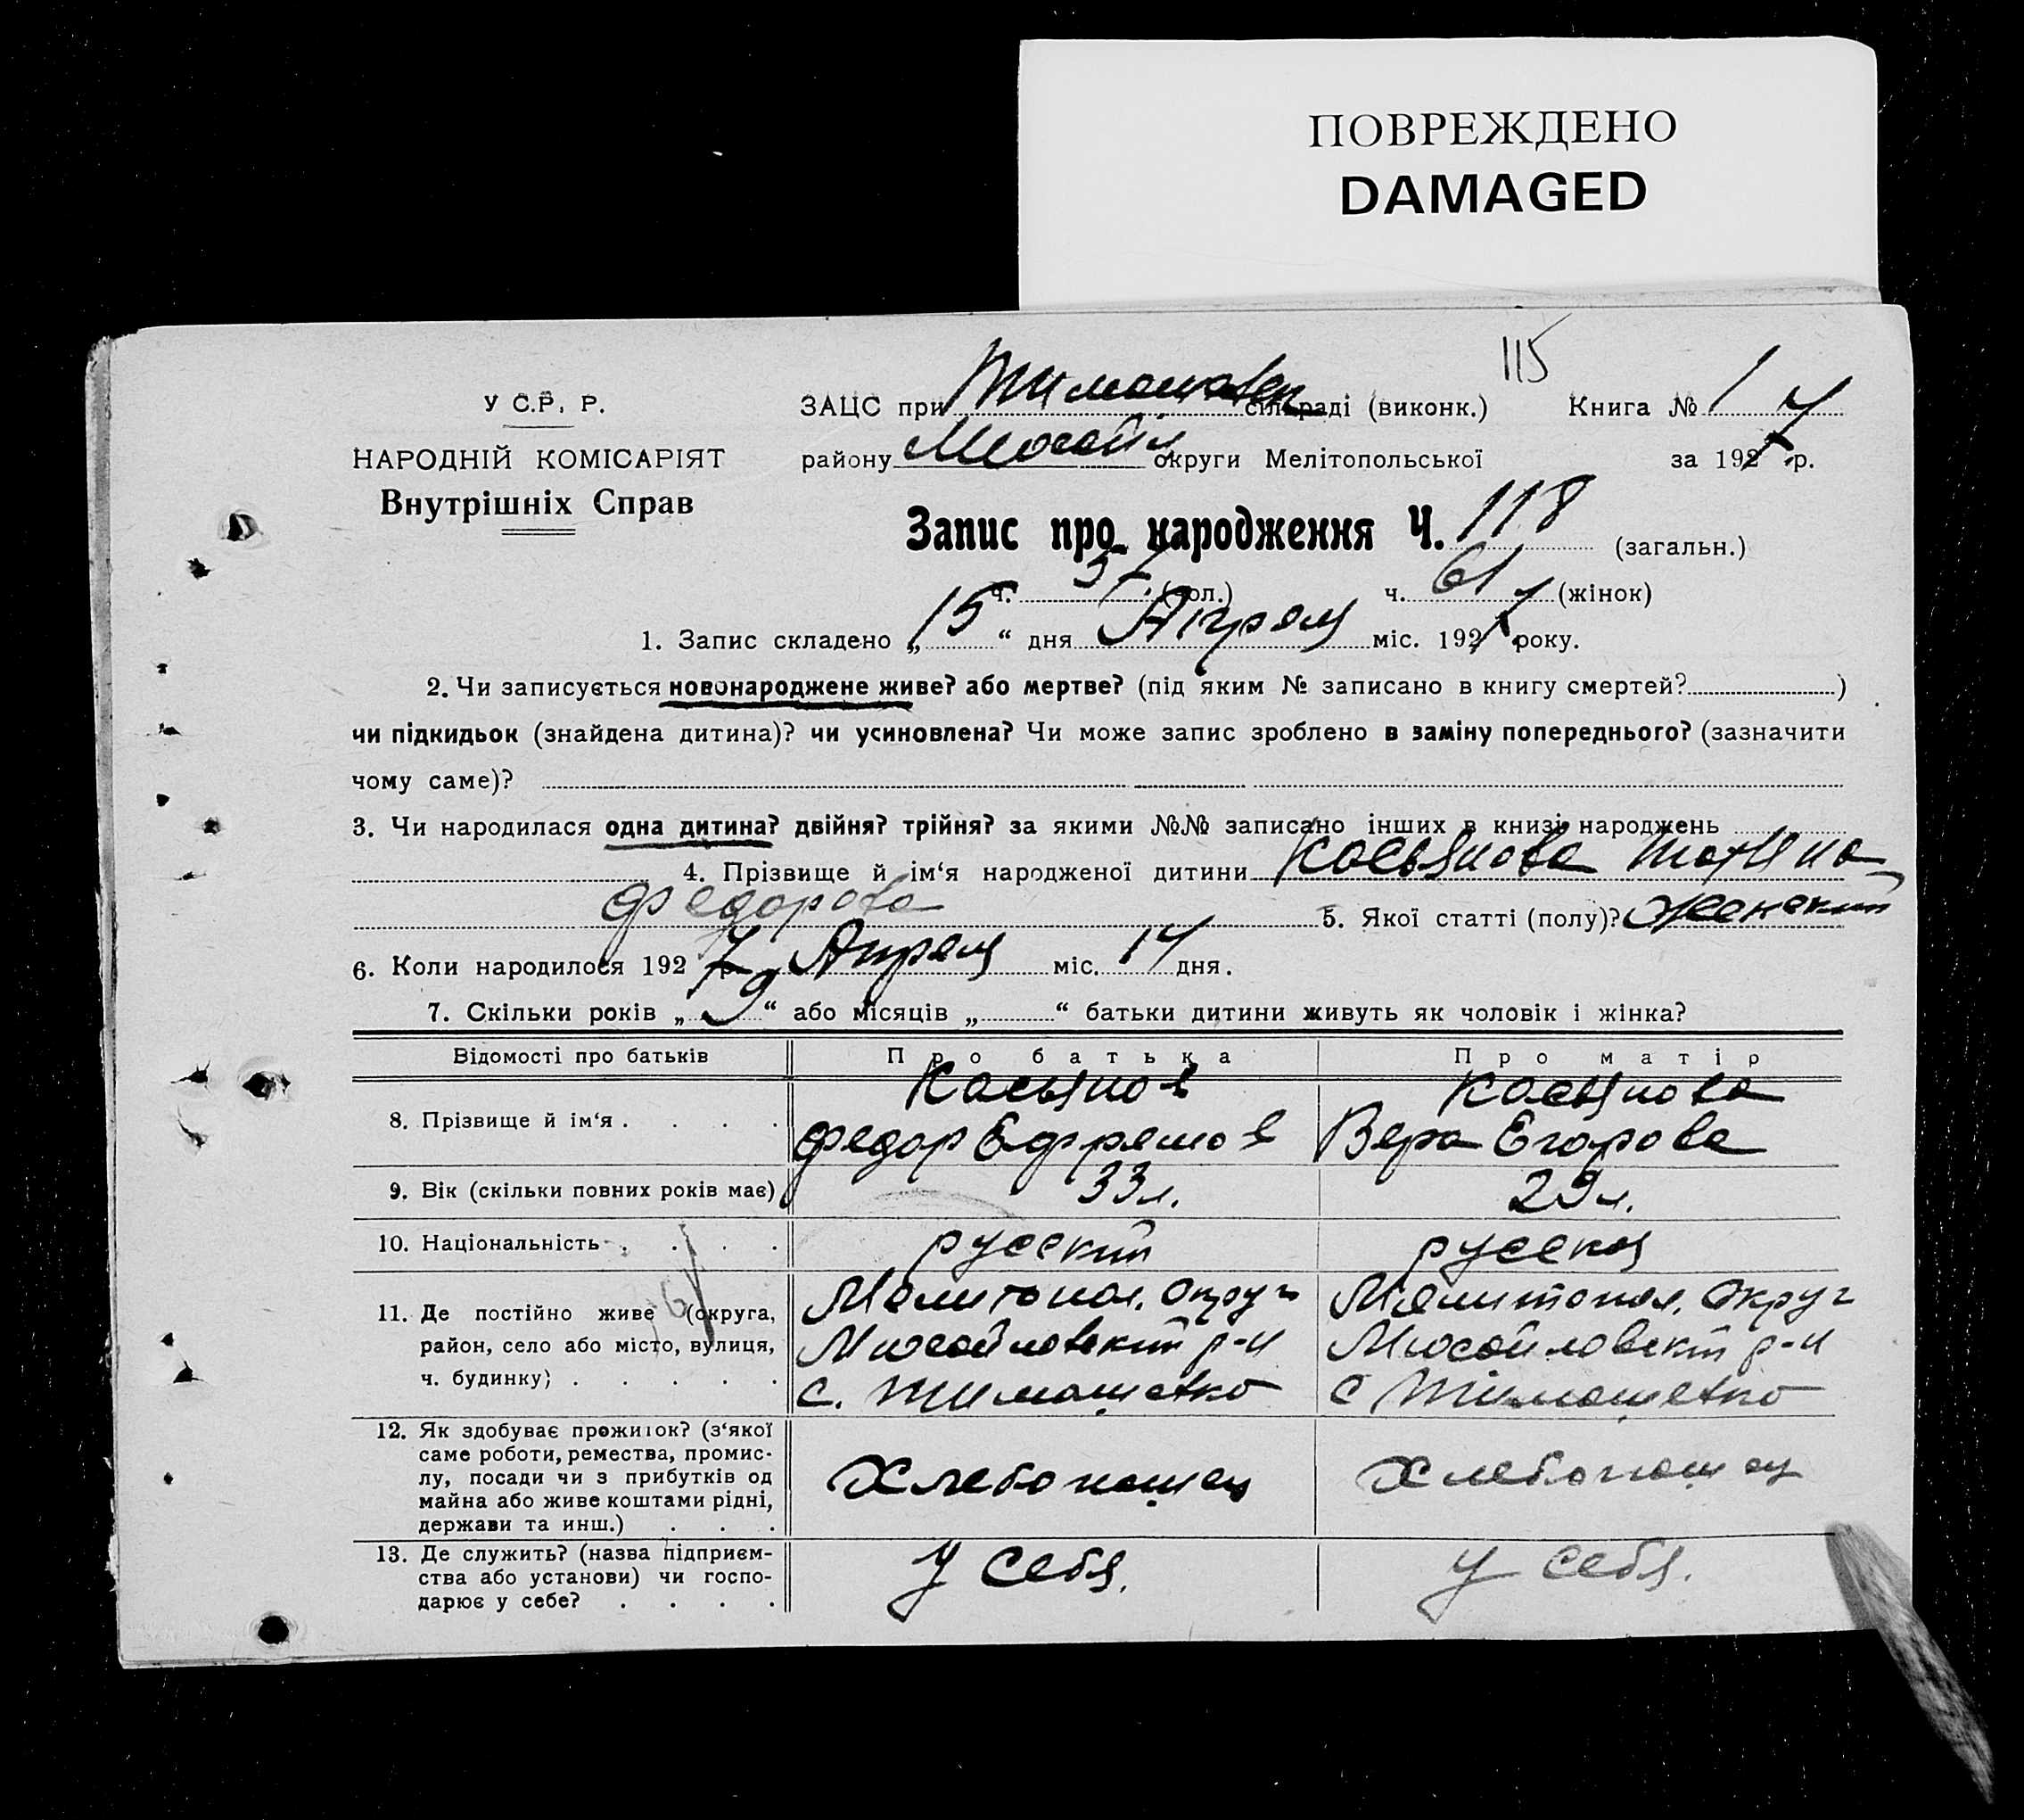 ПОВРЕЖДЕНО
DAMAGED
115
У С.Р. Р.
НАРОДНІЙ КОМІСАРІЯТ
Внутрішніх Справ
ЗАЦС при Тимошовск сільраді (виконк.) Книга № 1
району Михайл округи Мелітопольської за 1927 р.
Запис про народження Ч. 118 (загальн.)
ч. 57 (чол.) ч. 61 (жінок)
1. Запис складено „15“ дня Апреля міс. 1927 року.
2. Чи записується новонароджене живе? або мертве? (під яким № записано в книгу смертей? )
чи підкидьок (знайдена дитина)? чи усиновлена? Чи може запис зроблено в заміну попереднього? (зазначити
чому саме)?
3. Чи народилася одна дитина? двійня? трійня? за якими №№ записано інших в книзі народжень
4. Прізвище й ім‘я народженої дитини Касьянова Татіяна
Федорова 5. Якої статті (полу)? Женский
6. Коли народилося 1927 р. Апреля міс. 14 дня.
7. Скільки років „9“ або місяців „ “ батьки дитини живуть як чоловік і жінка?
Відомості про батьків Про батька Про матір
8. Прізвище й ім‘я . . . . Касьянов Касьянова
Федор Ефремов Вера Егорова
9. Вік (скільки повних років має) 33 л. 29 л.
10. Національність . . . . русский русская
11. Де постійно живе (округа, Мелитопол. округ Мелитопол. округ
район, село або місто, вулиця, Михайловский р-н Михайловский р-н
ч. будинку) . . . . . с. Тимашевко с Тимашевко
12. Як здобуває прожиток? (з‘якої
саме роботи, ремества, промис-
лу, посади чи з прибутків од Хлебопашец Хлебопашец
майна або живе коштами рідні,
держави та инш.) . . .
13. Де служить? (назва підприєм- У себя. У себя.
ства або установи) чи госпо-
дарює у себе? . . . .